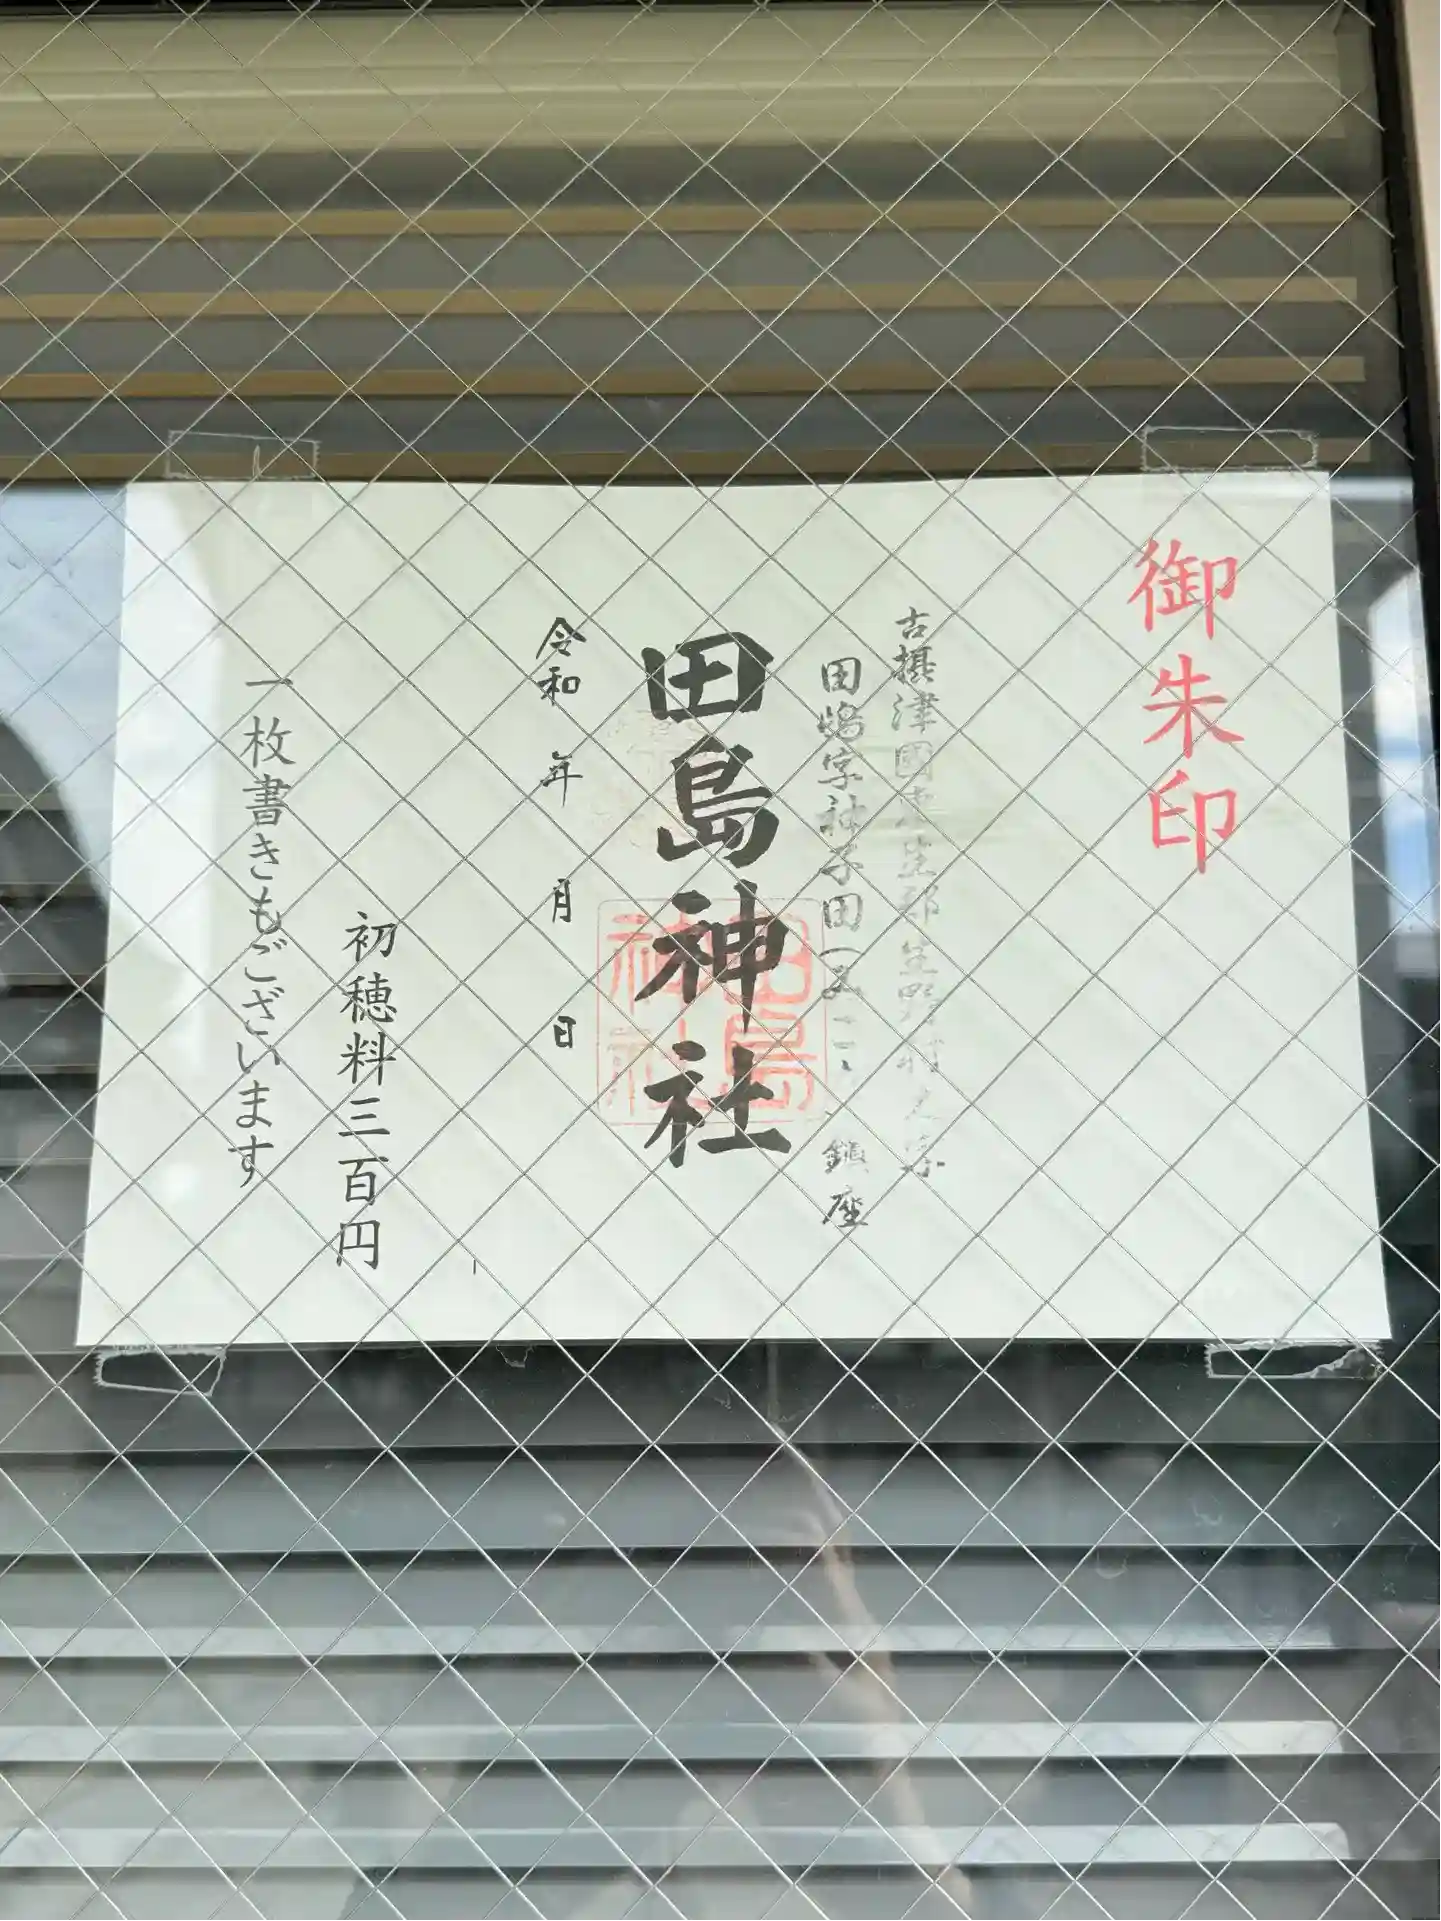 御朱印
古摂津國東生郡
田嶋字神子田 鎮座
田島神社
田島神社
令和 年 月 日
初穂料三百円
一枚書きもございます